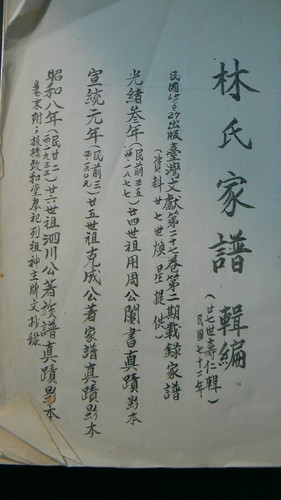 林氏家譜 輯編
(廿七世壽仁輯
民國七十二年)
民國65.6.27出版臺灣文獻第二十七卷第二期載錄家譜
(資料廿七世煥星提供)
光緒叁年(民前三五
西一八七七)廿四世祖用周公鬮書真蹟影本
宣統元年(民前三
西一九〇九)廿五世祖克成公著家譜真蹟影本
昭和八年(民廿二
西一九三三)廿六世祖泗川公著族譜真蹟影本
卷末附:板橋致和堂奉祀列祖神主牌文抄錄